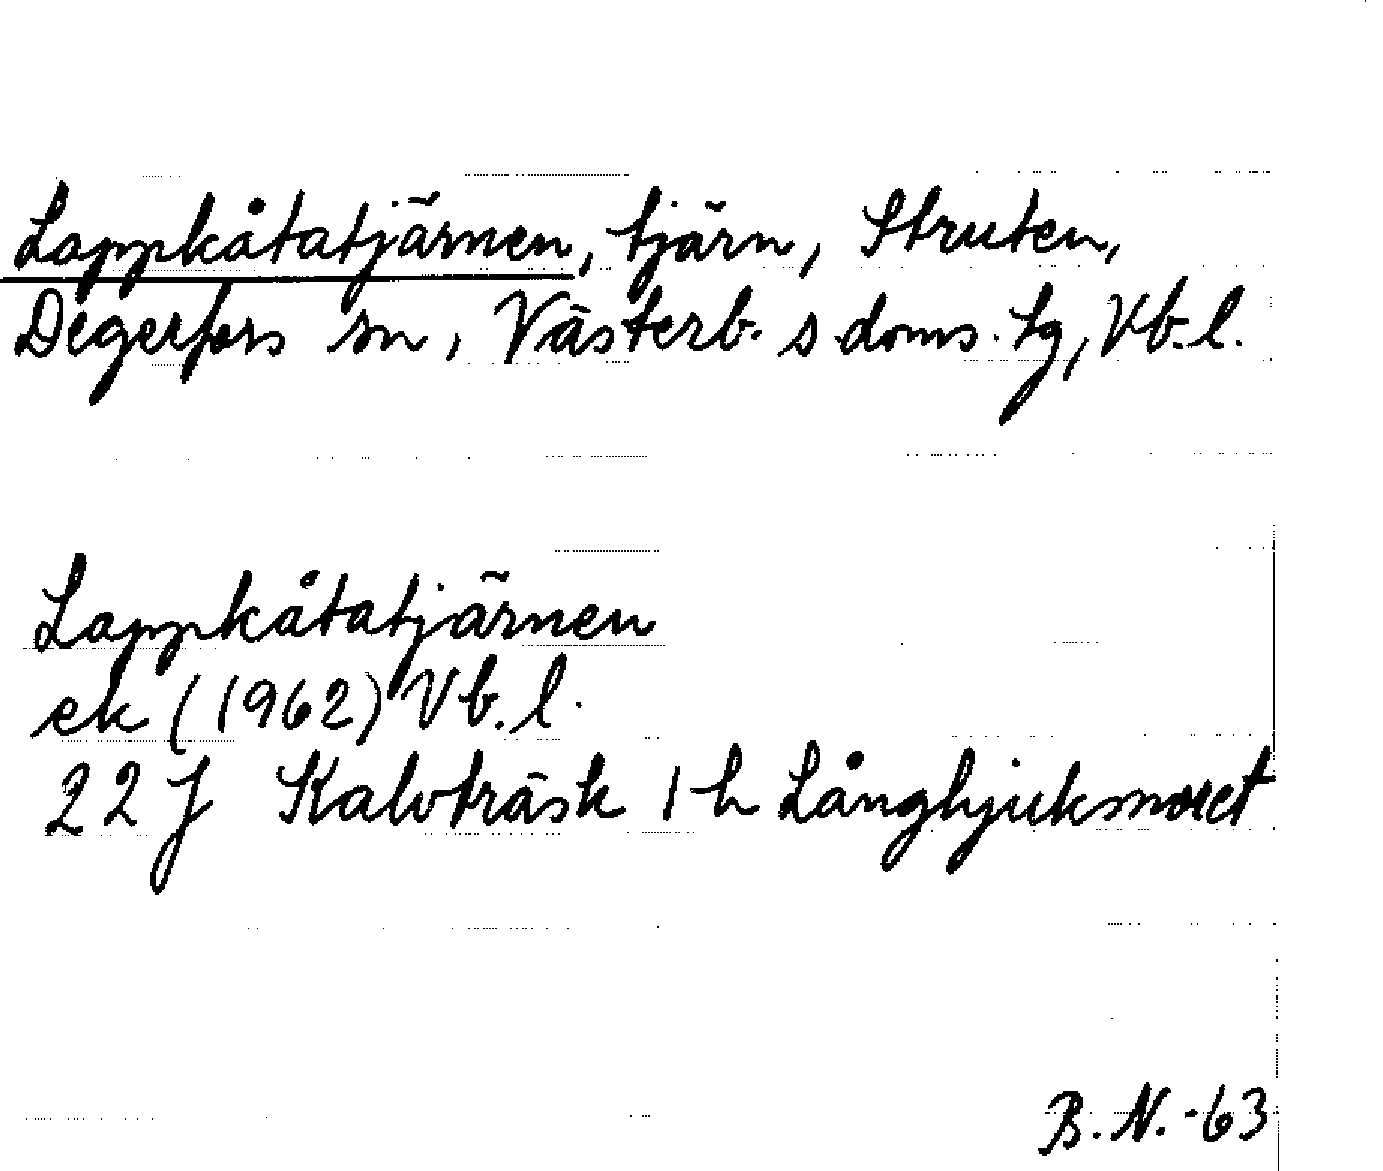 Lappkåtatjärnen, tjärn, Struten,
Degerfors sn, Västerb. s doms. tg, Vb. l.
Lappkåtatjärnen
ek (1962) Vb. l.
22 J Kalvträsk 1 h Långhjuksmoret
B. N. -63